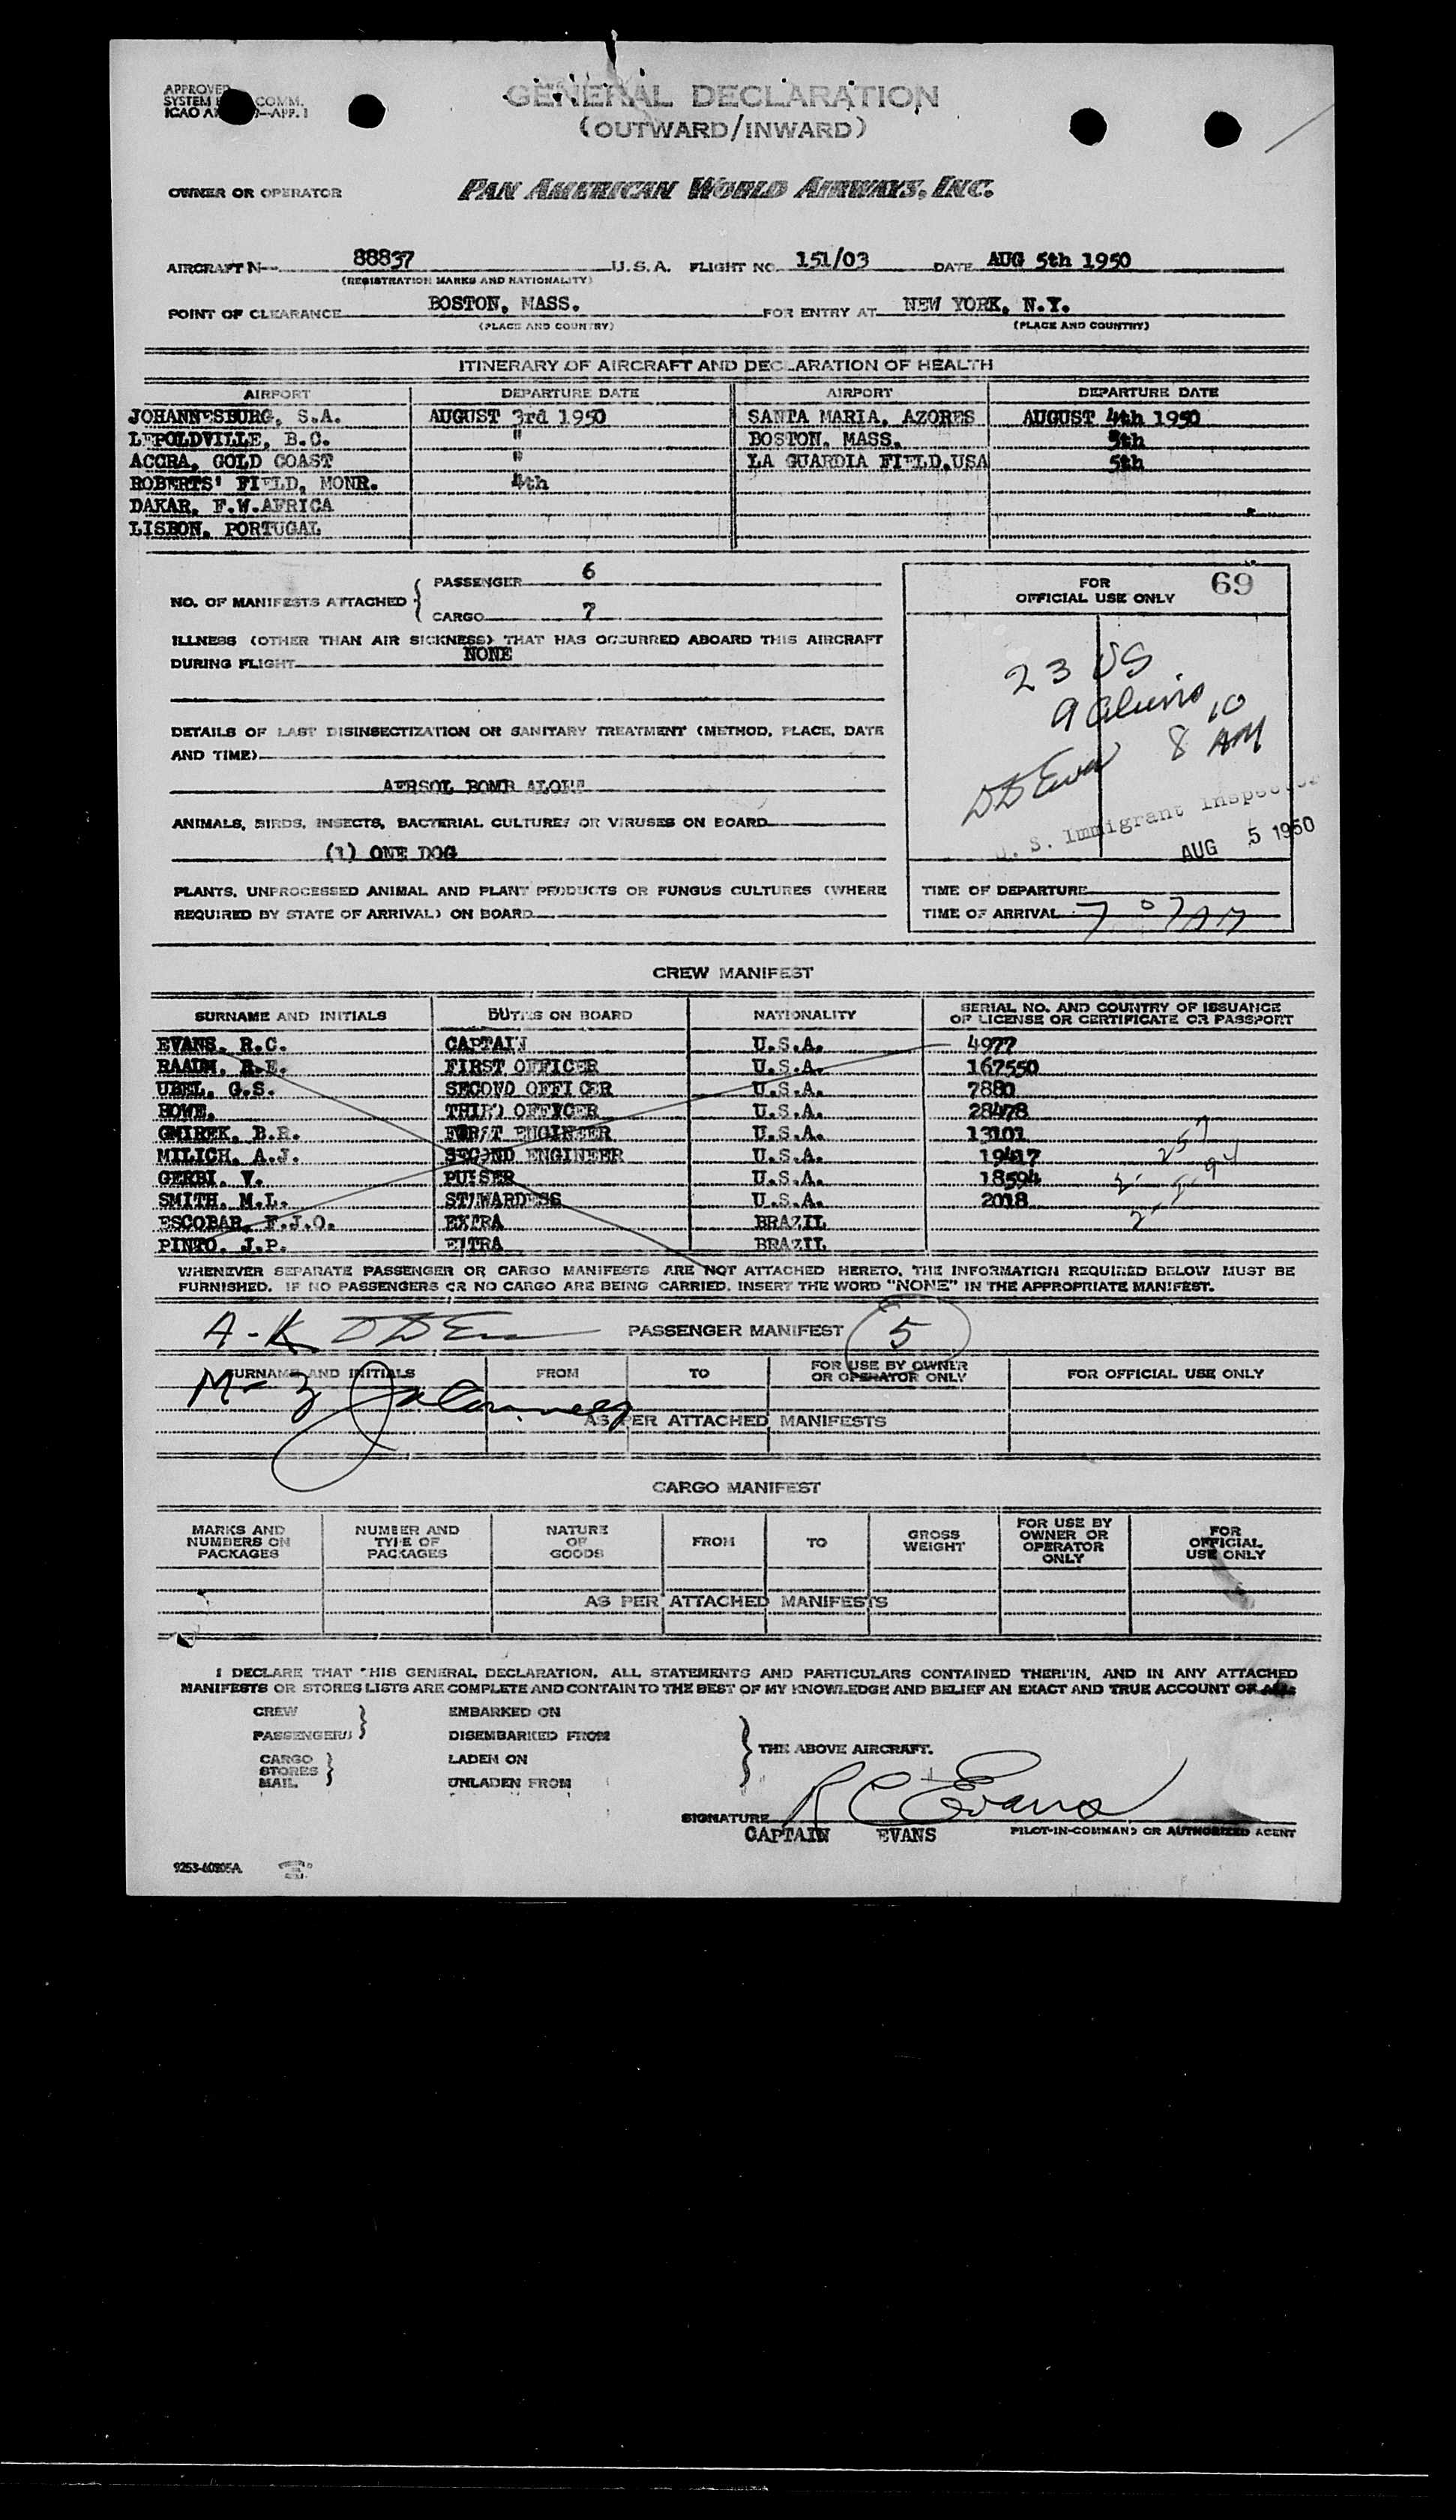 APPROVED
SYSTEM COMM.
ICAO —APP. 1
GENERAL DECLARATION
(OUTWARD/INWARD)
OWNER OR OPERATOR PAN AMERICAN WORLD AIRWAYS, INC.
AIRCRAFT N— 88837 U.S.A. FLIGHT NO. 151/03 DATE AUG 5th 1950
(REGISTRATION MARKS AND NATIONALITY)
POINT OF CLEARANCE BOSTON, MASS. FOR ENTRY AT NEW YORK, N.Y.
(PLACE AND COUNTRY) (PLACE AND COUNTRY)
ITINERARY OF AIRCRAFT AND DECLARATION OF HEALTH
AIRPORT DEPARTURE DATE AIRPORT DEPARTURE DATE
JOHANNESBURG, S.A. AUGUST 3rd 1950 SANTA MARIA, AZORES AUGUST 4th 1950
LEPOLDVILLE, B.C. " BOSTON, MASS. 5th
ACCRA, GOLD COAST " LA GUARDIA FIELD,USA 5th
ROBERTS' FIELD, MONR. 4th
DAKAR, F.W.AFRICA
LISBON, PORTUGAL
NO. OF MANIFESTS ATTACHED { PASSENGER 6
CARGO 7
ILLNESS (OTHER THAN AIR SICKNESS) THAT HAS OCCURRED ABOARD THIS AIRCRAFT
DURING FLIGHT NONE
DETAILS OF LAST DISINSECTIZATION OR SANITARY TREATMENT (METHOD, PLACE, DATE
AND TIME)
AERSOL BOMB ALONE
ANIMALS, BIRDS, INSECTS, BACTERIAL CULTURES OR VIRUSES ON BOARD
(1) ONE DOG
PLANTS, UNPROCESSED ANIMAL AND PLANT PRODUCTS OR FUNGUS CULTURES (WHERE
REQUIRED BY STATE OF ARRIVAL) ON BOARD
FOR
OFFICIAL USE ONLY 69
23 US
9 Aliens
8 10 AM
U. S. Immigrant Inspector
AUG 5 1950
TIME OF DEPARTURE
TIME OF ARRIVAL 7 07 AM
CREW MANIFEST
SURNAME AND INITIALS DUTIES ON BOARD NATIONALITY SERIAL NO. AND COUNTRY OF ISSUANCE
OF LICENSE OR CERTIFICATE OR PASSPORT
EVANS, R.C. CAPTAIN U.S.A. 4977
RAAUM, R.E. FIRST OFFICER U.S.A. 167550
UBEL, G.S. SECOND OFFICER U.S.A. 7880
HOWE, THIRD OFFICER U.S.A. 28478
GMIREK, B.R. FIRST ENGINEER U.S.A. 13101
MILICH, A.J. SECOND ENGINEER U.S.A. 19417
GERBI, V. PURSER U.S.A. 18594
SMITH, M.L. STEWARDESS U.S.A. 2018
ESCOBAR, F.J.O. EXTRA BRAZIL
PINTO, J.P. EXTRA BRAZIL
WHENEVER SEPARATE PASSENGER OR CARGO MANIFESTS ARE NOT ATTACHED HERETO, THE INFORMATION REQUIRED BELOW MUST BE
FURNISHED. IF NO PASSENGERS OR NO CARGO ARE BEING CARRIED, INSERT THE WORD "NONE" IN THE APPROPRIATE MANIFEST.
A-K PASSENGER MANIFEST 5
SURNAME AND INITIALS FROM TO FOR USE BY OWNER
OR OPERATOR ONLY FOR OFFICIAL USE ONLY
M-Z
AS PER ATTACHED MANIFESTS
CARGO MANIFEST
MARKS AND
NUMBERS ON
PACKAGES NUMBER AND
TYPE OF
PACKAGES NATURE
OF
GOODS FROM TO GROSS
WEIGHT FOR USE BY
OWNER OR
OPERATOR
ONLY FOR
OFFICIAL
USE ONLY
AS PER ATTACHED MANIFESTS
I DECLARE THAT THIS GENERAL DECLARATION, ALL STATEMENTS AND PARTICULARS CONTAINED THEREIN, AND IN ANY ATTACHED
MANIFESTS OR STORES LISTS ARE COMPLETE AND CONTAIN TO THE BEST OF MY KNOWLEDGE AND BELIEF AN EXACT AND TRUE ACCOUNT OF ALL:
CREW EMBARKED ON
PASSENGERS DISEMBARKED FROM
THE ABOVE AIRCRAFT.
CARGO LADEN ON
STORES
MAIL UNLADEN FROM
SIGNATURE R C Evans
CAPTAIN EVANS PILOT-IN-COMMAND OR AUTHORIZED AGENT
9253-40805A